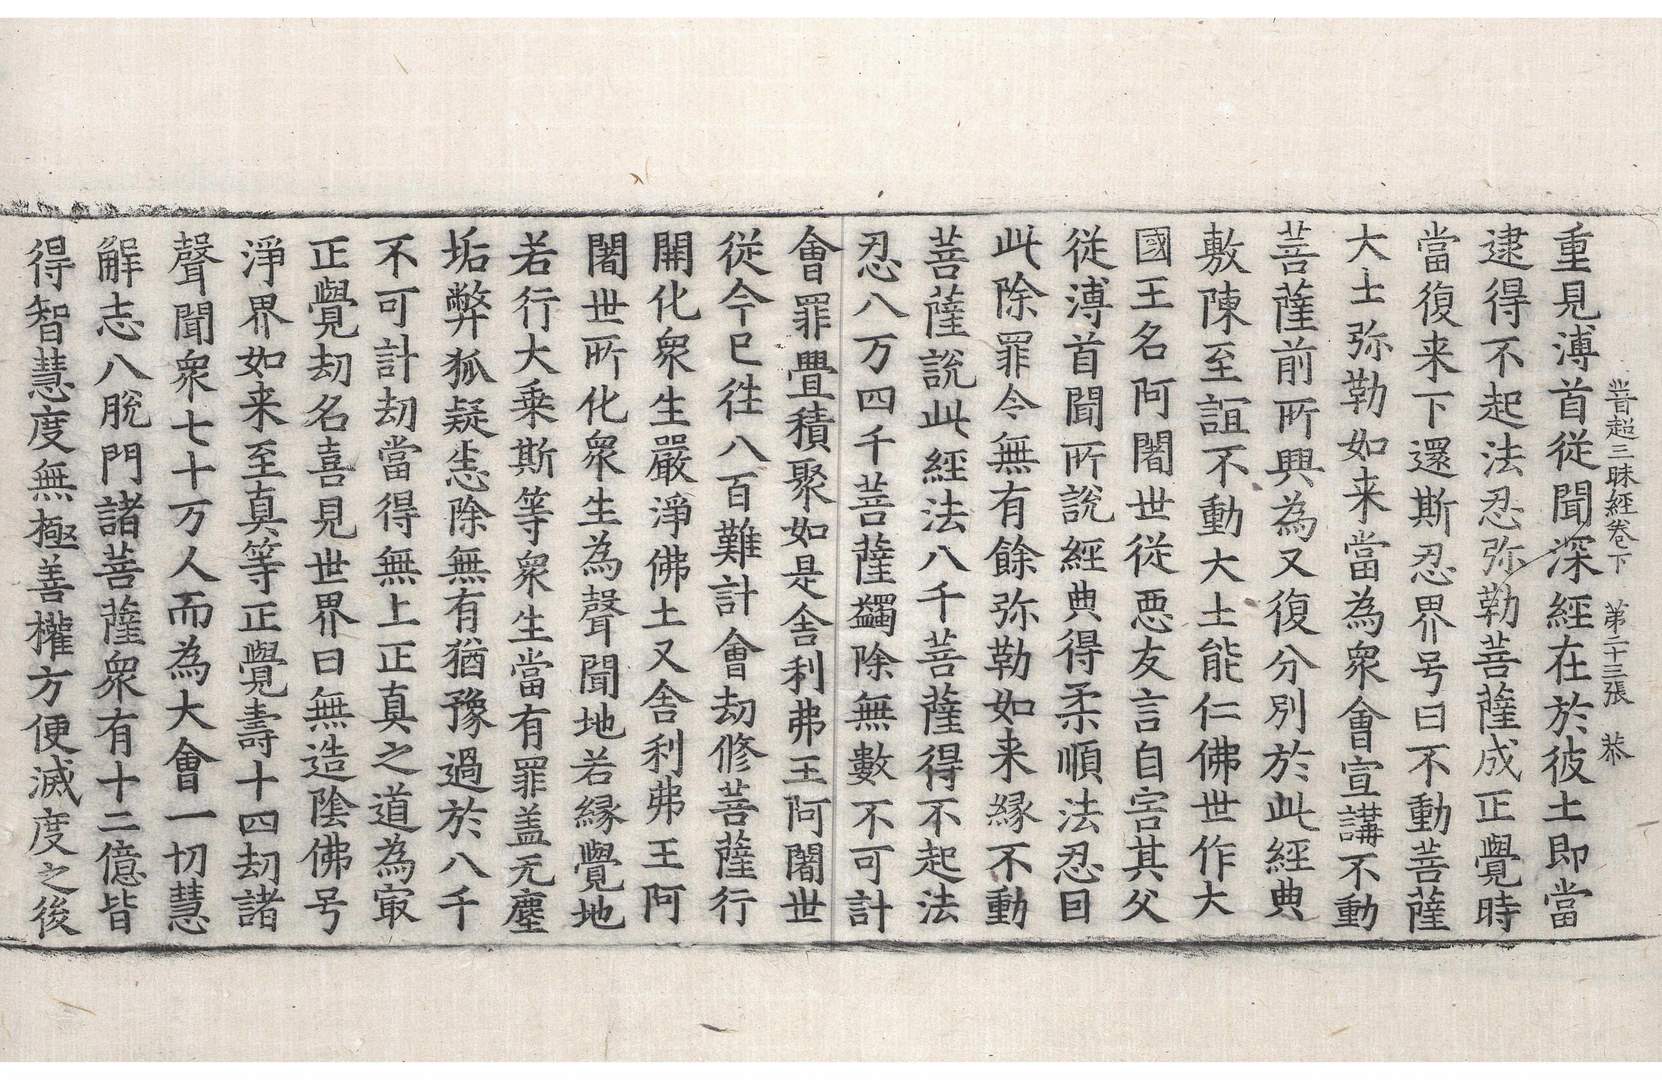 普超三昧經卷下　第二十三張　恭
重見溥首從聞深經在於彼土即當
逮得不起法忍弥勒菩薩成正覺時
當復来下還斯忍界号曰不動菩薩
大士弥勒如来當為衆會宣講不動
菩薩前所興為又復分別於此經典
敷陳至誼不動大士能仁佛世作大
國王名阿闍世從惡友言自害其父
從溥首聞所說經典得柔順法忍因
此除罪令無有餘弥勒如来緣不動
菩薩說此經法八千菩薩得不起法
忍八万四千菩薩蠲除無數不可計
會罪舋積聚如是舍利弗王阿闍世
從今已往八百難計會劫修菩薩行
開化衆生嚴淨佛土又舍利弗王阿
闍世所化衆生為聲聞地若緣覺地
若行大乘斯等衆生當有罪盖无塵
垢弊狐疑恚除無有猶豫過於八千
不可計劫當得無上正真之道為㝡
正覺劫名喜見世界曰無造陰佛号
淨界如来至真等正覺壽十四劫諸
聲聞衆七十万人而為大會一切慧
解志八脫門諸菩薩衆有十二億皆
得智慧度無極善權方便滅度之後